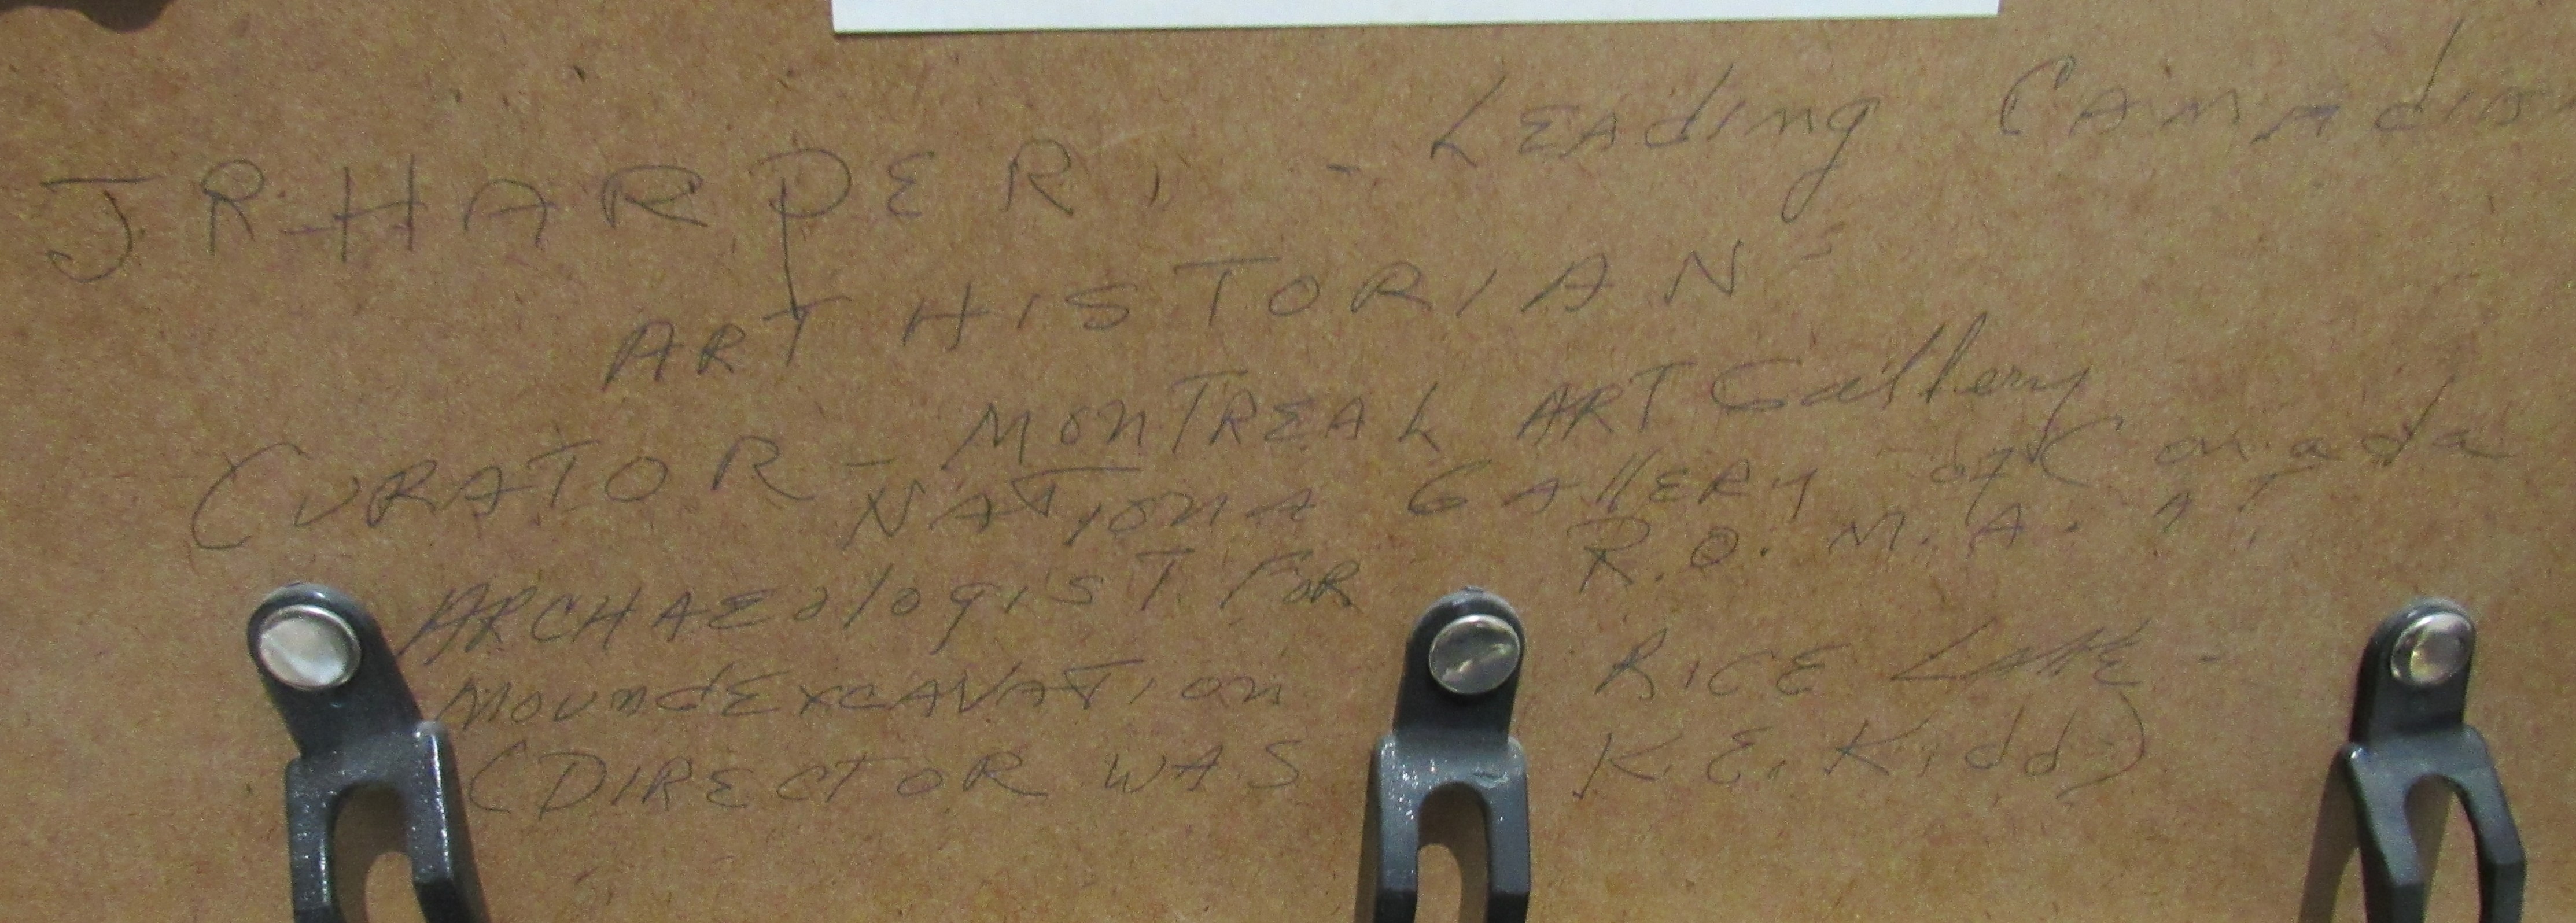 J.R. HARPER, - LEAding CANAdian
ART HISTORIAN -
CURATOR - MONTREAL ART Gallery
- NATIONA GAllERY of Canada
ARCHAEologIST FOR R.O.M.A. AT
MOUNd EXCAVATION RICE LAKE -
(DIRECTOR WAS K.E. Kidd)